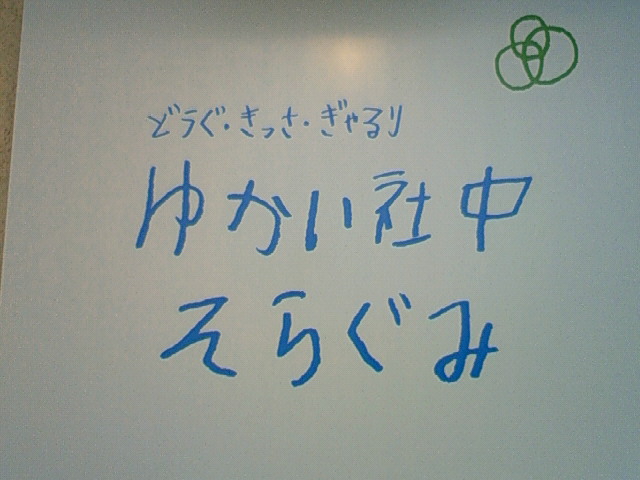 どうぐ・きっさ・ぎゃるり
ゆかい社中
そらぐみ